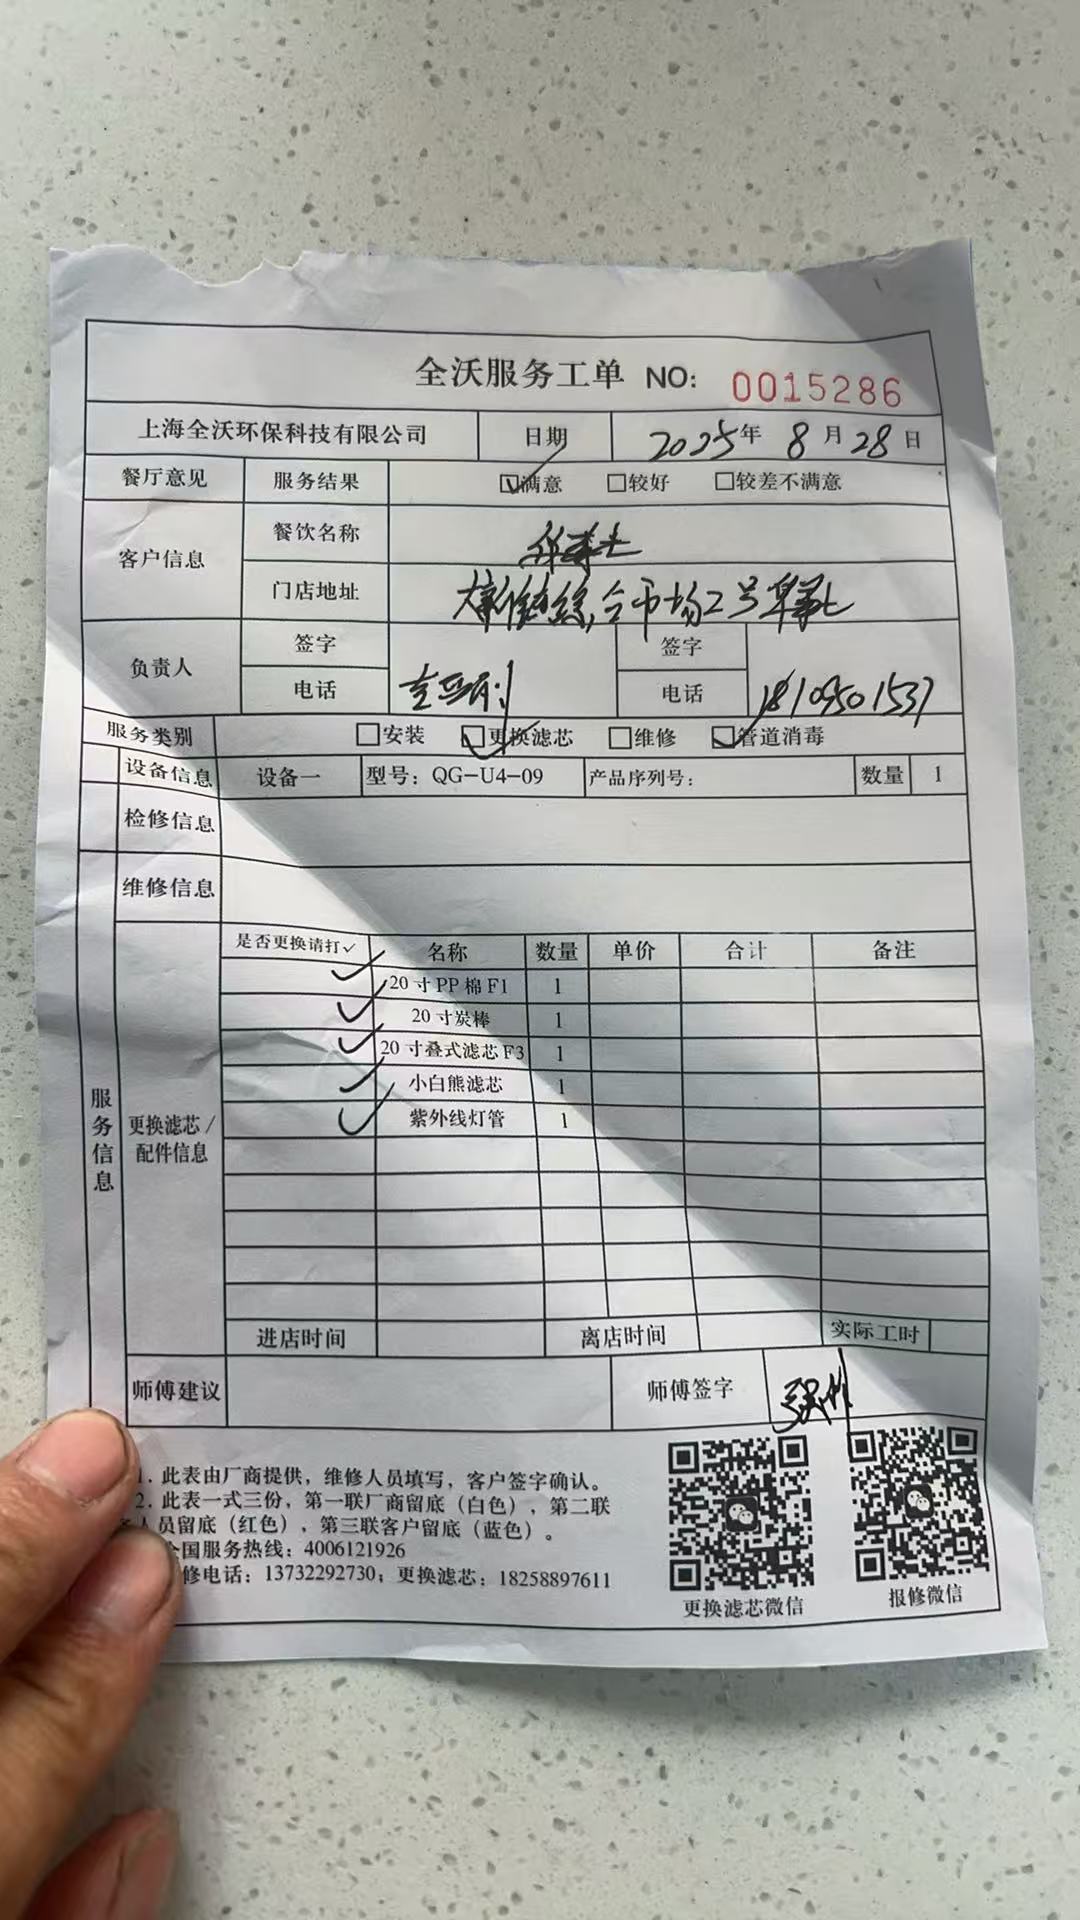 全沃服务工单 NO: 0015286
上海全沃环保科技有限公司 日期 2025年 8月28日
餐厅意见 服务结果 ☑满意 □较好 □较差不满意
客户信息 餐饮名称 华莱士
门店地址 合市场2号华莱士
负责人 签字 签字
电话 电话 18109501537
服务类别 □安装 ☑更换滤芯 □维修 ☑管道消毒
设备信息 设备一 型号: QG-U4-09 产品序列号: 数量 1
检修信息
维修信息
服务信息
更换滤芯/
配件信息
是否更换请打✓ 名称 数量 单价 合计 备注
✓ 20寸PP棉F1 1
✓ 20寸炭棒 1
✓ 20寸叠式滤芯F3 1
✓ 小白熊滤芯 1
✓ 紫外线灯管 1
进店时间 离店时间 实际工时
师傅建议 师傅签字
1. 此表由厂商提供，维修人员填写，客户签字确认。
2. 此表一式三份，第一联厂商留底（白色），第二联
人员留底（红色），第三联客户留底（蓝色）。
全国服务热线: 4006121926
修电话: 13732292730; 更换滤芯: 18258897611
更换滤芯微信 报修微信